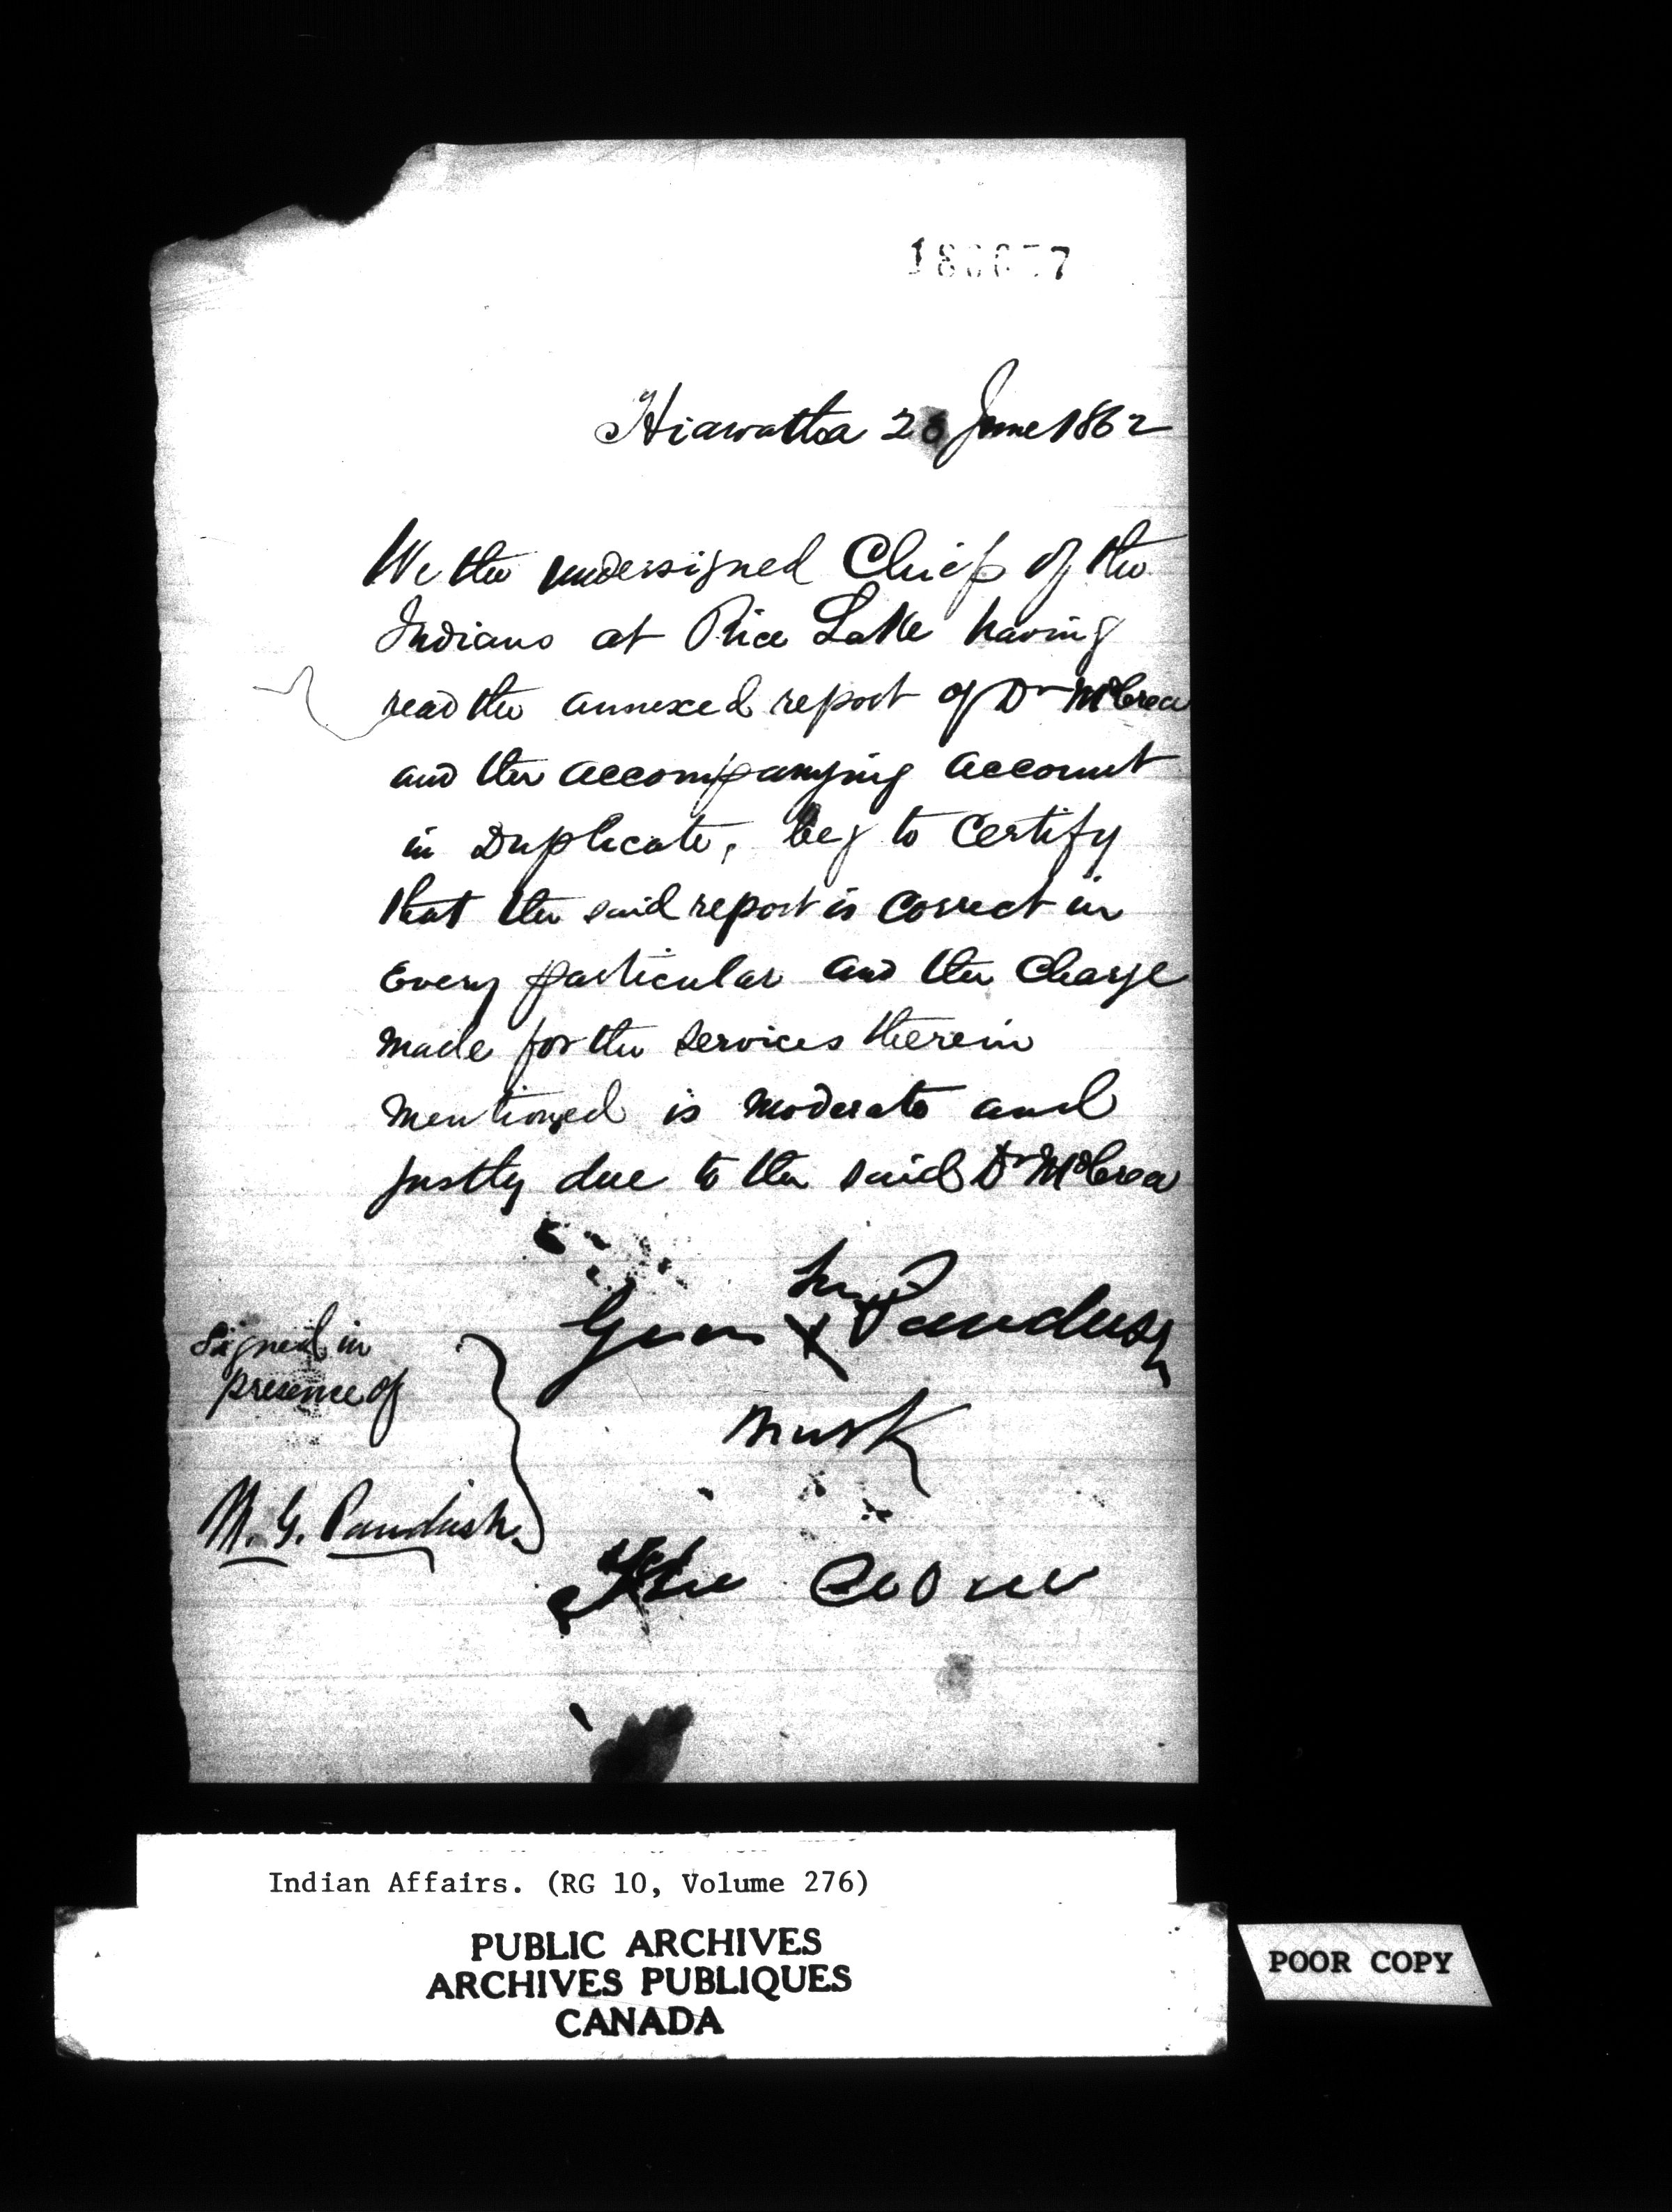 Hiawatha 23 June 1862
We the undersigned Chiefs of the
Indians at Rice Lake having
read the annexed report of Dr McCrea
and the accompanying account
in Duplicate, beg to Certify
that the said report is correct in
Every particular and the Charge
made for the services therein
mentioned is moderate and
justly due to the said Dr McCrea
his
Geo X Paudash
mark
Signed in
presence of
M. G. Paudash
Indian Affairs. (RG 10, Volume 276)
PUBLIC ARCHIVES
ARCHIVES PUBLIQUES
CANADA
POOR COPY